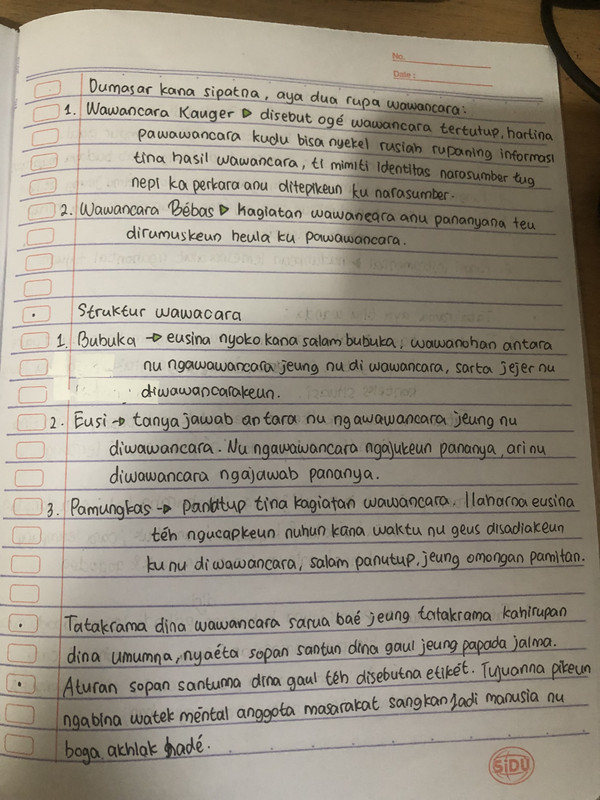 No.
Date :
Dumasar kana sipatna, aya dua rupa wawancara:
1. Wawancara Kauger ▷ disebut ogé wawancara tertutup, hartina
pawawancara kudu bisa nyekel rusiah rupaning informasi
tina hasil wawancara, ti mimiti identitas narosumber tug
nepi ka perkara anu ditepikeun ku narasumber.
2. Wawancara Bébas ▷ Kagiatan wawancara anu pananyana teu
dirumuskeun heula ku pawawancara.
• Struktur wawacara
1. Bubuka → eusina nyoko kana salam bubuka, wawanohan antara
nu ngawawancara jeung nu di wawancara, sarta jejer nu
diwawancarakeun.
2. Eusi → tanya jawab antara nu ngawawancara jeung nu
diwawancara. Nu ngawawancara ngajukeun pananya, ari nu
diwawancara ngajawab pananya.
3. Pamungkas → panutup tina kagiatan wawancara. Ilaharna eusina
téh ngucapkeun nuhun kana waktu nu geus disadiakeun
ku nu diwawancara, salam panutup, jeung omongan pamitan.
• Tatakrama dina wawancara sarua baé jeung tatakrama kahirupan
dina umumna, nyaéta sopan santun dina gaul jeung papada jalma.
• Aturan sopan santunna dina gaul téh disebutna etikét. Tujuanna pikeun
ngabina watek méntal anggota masarakat sangkan jadi manusia nu
boga akhlak hadé.
SiDU